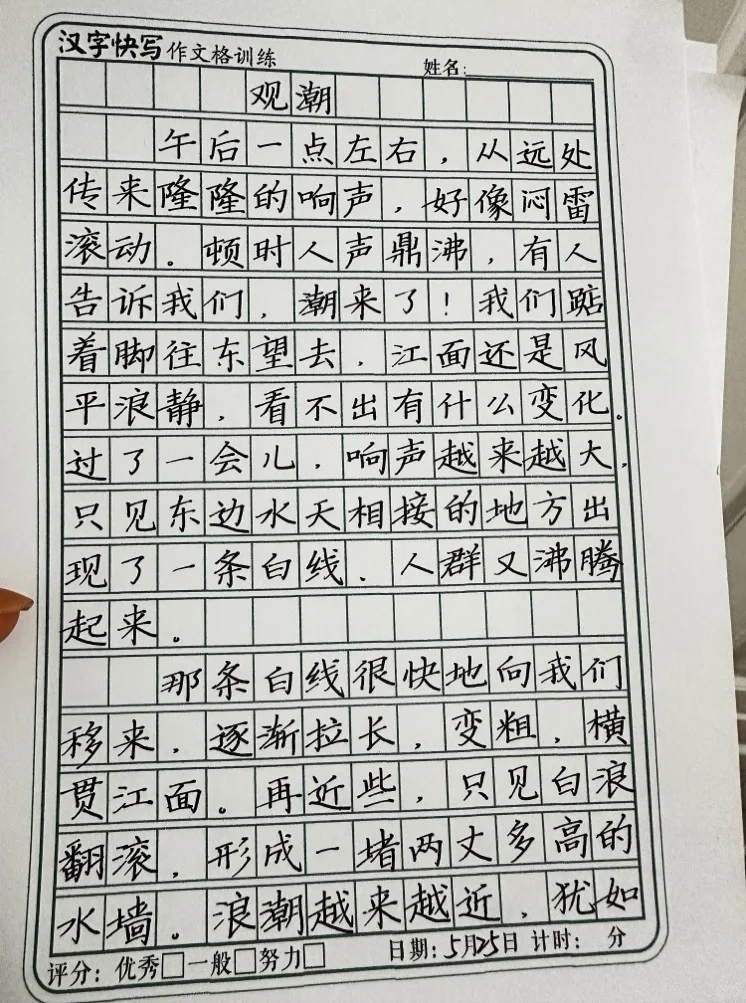 汉字快写作文格训练 姓名:
观潮
午后一点左右，从远处
传来隆隆的响声，好像闷雷
滚动。顿时人声鼎沸，有人
告诉我们，潮来了！我们踮
着脚往东望去，江面还是风
平浪静，看不出有什么变化。
过了一会儿，响声越来越大，
只见东边水天相接的地方出
现了一条白线，人群又沸腾
起来。
那条白线很快地向我们
移来，逐渐拉长，变粗，横
贯江面。再近些，只见白浪
翻滚，形成一堵两丈多高的
水墙。浪潮越来越近，犹如
评分：优秀□一般□努力□ 日期：5月25日 计时： 分